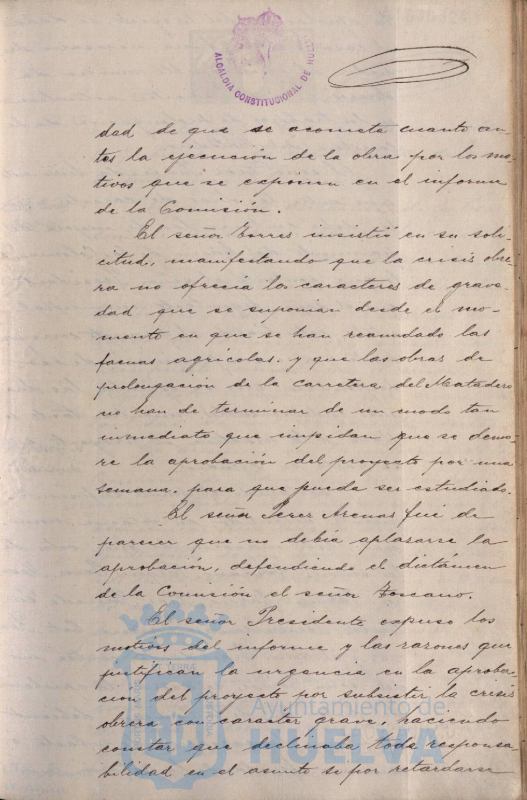 ALCALDIA CONSTITUCIONAL DE HUELVA
dad de que se acometa cuanto an-
tes la ejecución de la obra por los mo-
tivos que se exponen en el informe
de la Comisión.
El señor Torres insistió en su soli-
citud, manifestando que la crisis obre-
ra no ofrecia los caracteres de grave-
dad que se suponian desde el mo-
mento en que se han reanudado las
faenas agrícolas, y que las obras de
prolongación de la carretera del Matadero
no han de terminar de un modo tan
inmediato que impidan que se demo-
re la aprobación del proyecto por una
semana, para que pueda ser estudiado.
El señor Perez Arenas fué de
parecer que no debia aplazarse la
aprobación, defendiendo el dictámen
de la Comisión el señor Toscano.
El señor Presidente expuso los
motivos del informe y las razones que
justifican la urgencia en la aproba-
cion del proyecto por subsistir la crisis
obrera con caracter grave, haciendo
constar que declinaba toda responsa-
bilidad en el asunto si por retardarse
Ayuntamiento de
HUELVA